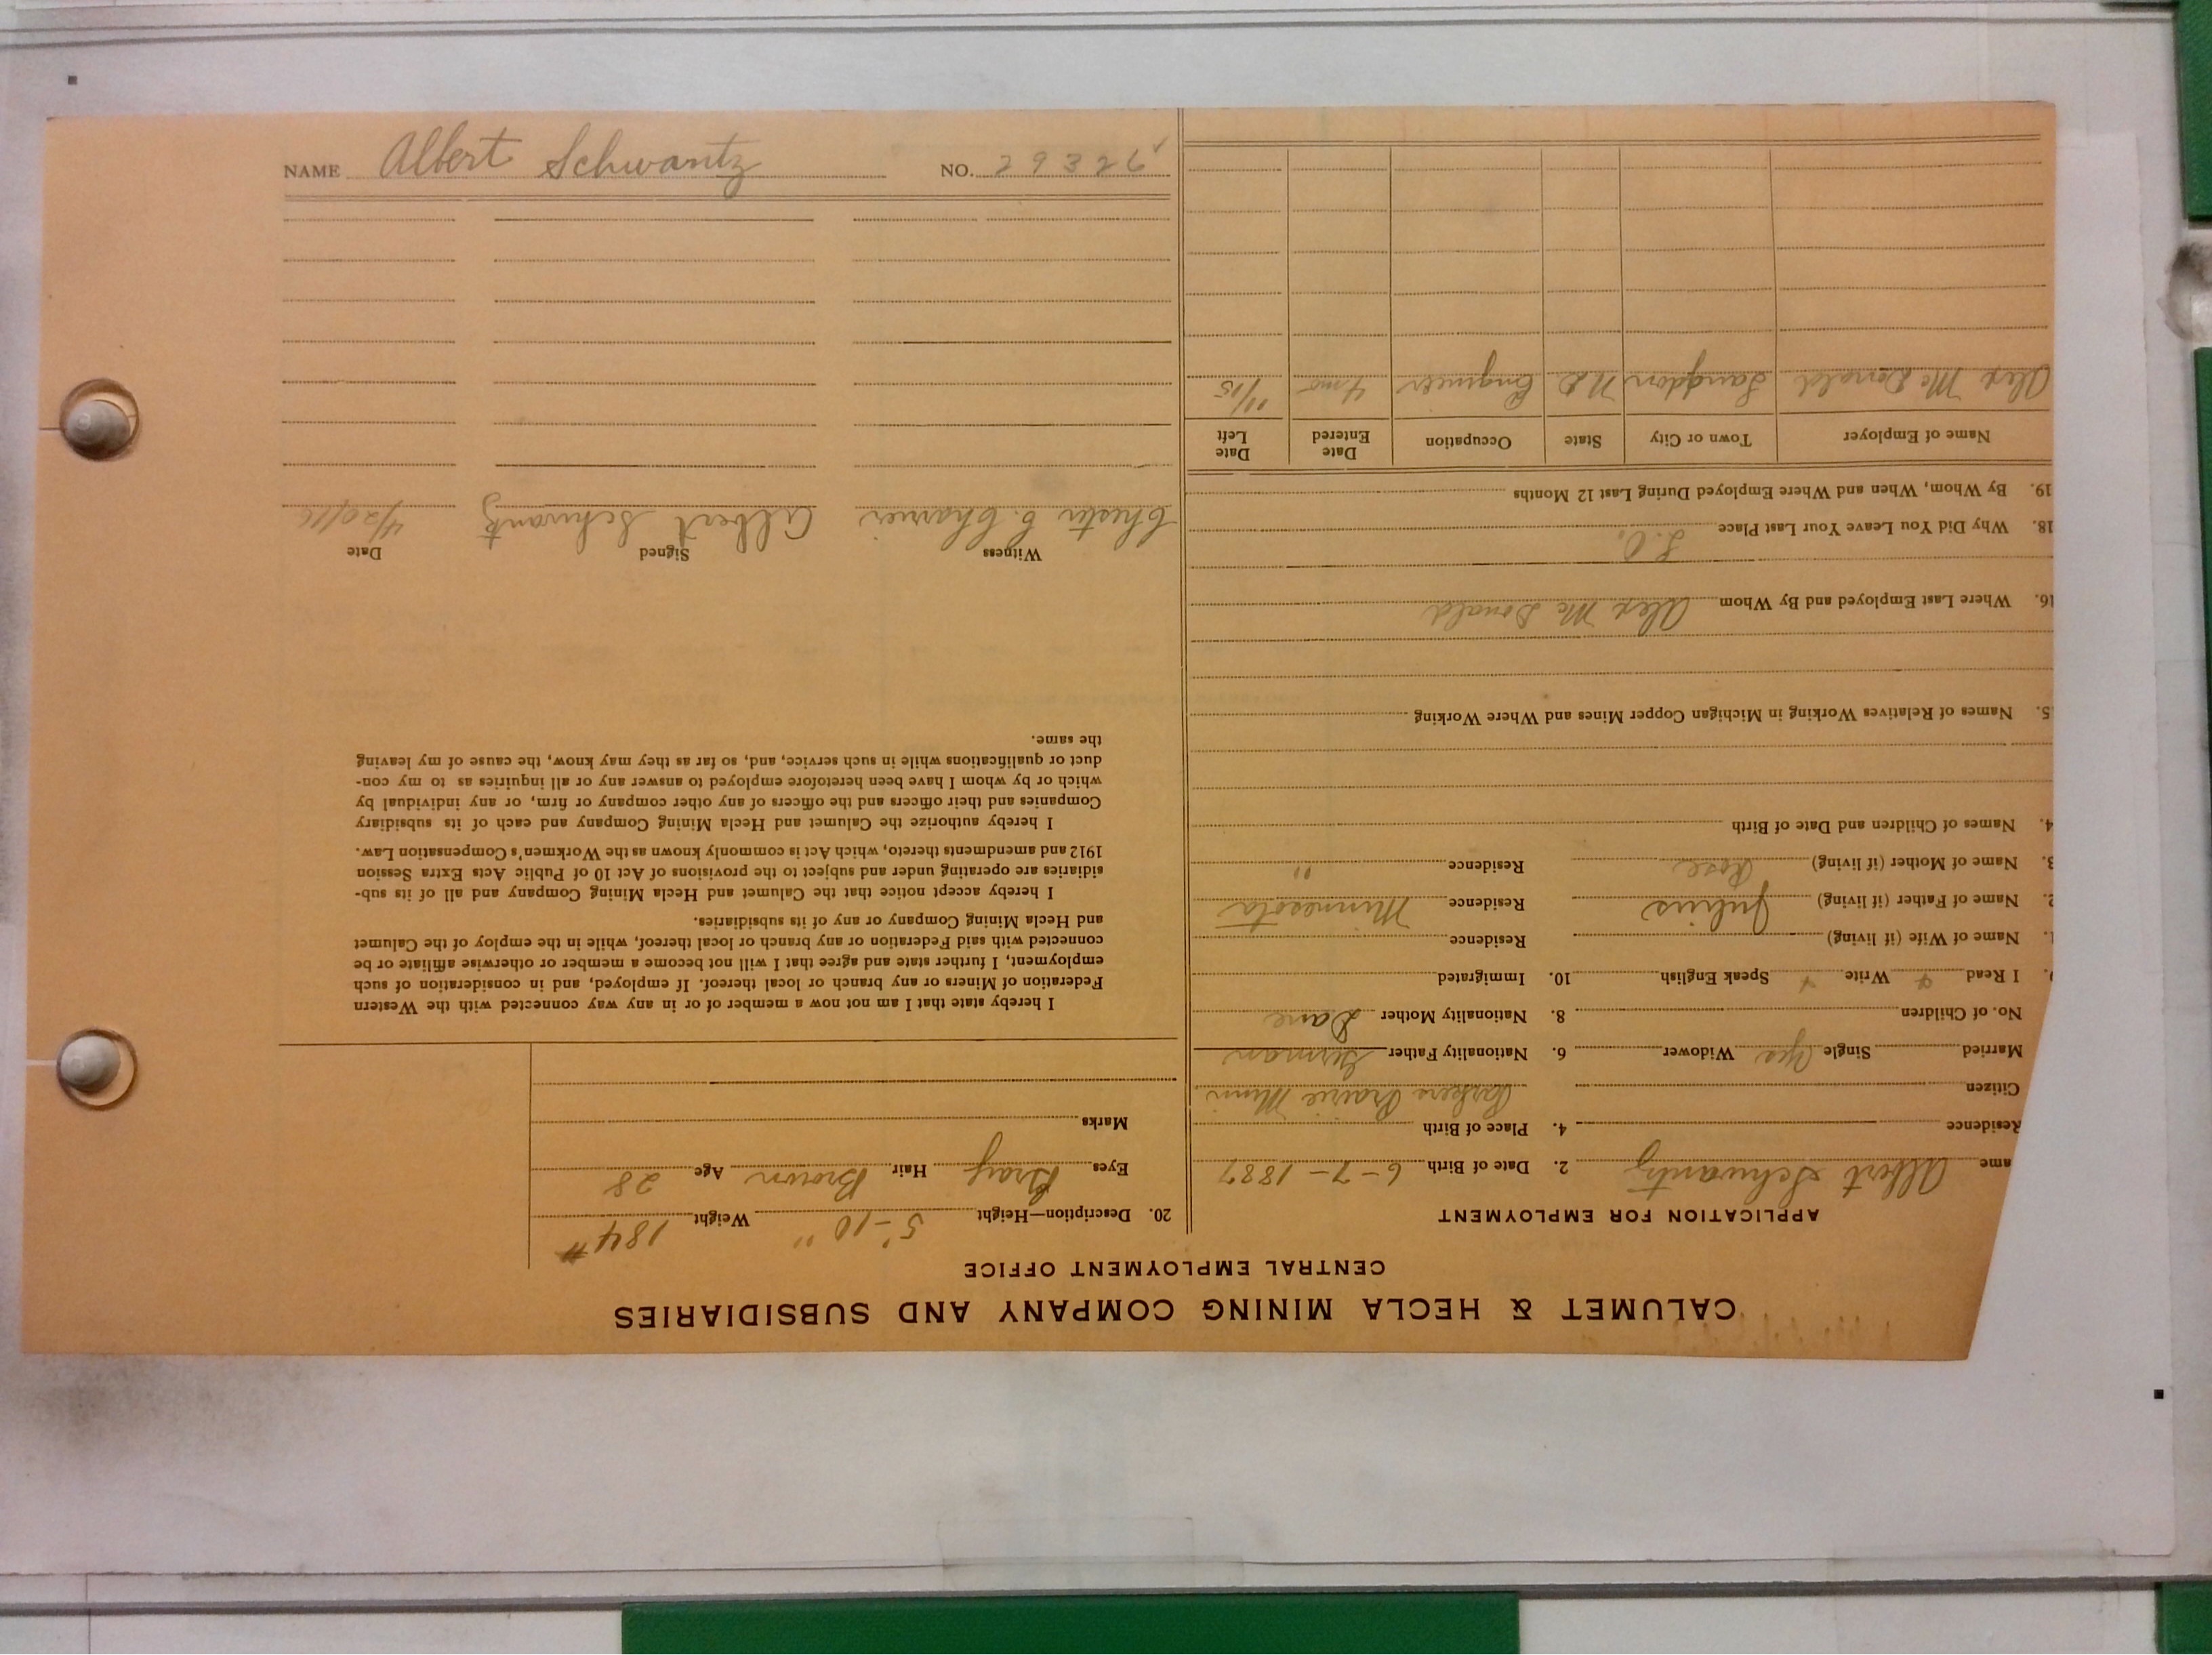 NAME Albert Schwantz NO. 29326
CALUMET & HECLA MINING COMPANY AND SUBSIDIARIES
CENTRAL EMPLOYMENT OFFICE
APPLICATION FOR EMPLOYMENT
ame Albert Schwantz 2. Date of Birth 6-7-1887
Residence 4. Place of Birth
Citizen Parkers Prairie Minn
Married Single Yes Widower 6. Nationality Father German
No. of Children 8. Nationality Mother Dane
I Read Write Speak English 10. Immigrated
1. Name of Wife (if living) Residence
2. Name of Father (if living) Julius Residence Minnesota
3. Name of Mother (if living) Rose Residence "
4. Names of Children and Date of Birth
5. Names of Relatives Working in Michigan Copper Mines and Where Working
16. Where Last Employed and By Whom Alex McDonald
18. Why Did You Leave Your Last Place
19. By Whom, When and Where Employed During Last 12 Months
Name of Employer Town or City State Occupation Date Entered Date Left
Alex McDonald Langdon N.D Engineer 4 mo 11/15
20. Description—Height 5'-10" Weight 184#
Eyes Gray Hair Brown Age 28
Marks
I hereby state that I am not now a member of or in any way connected with the Western
Federation of Miners or any branch or local thereof. If employed, and in consideration of such
employment, I further state and agree that I will not become a member or otherwise affiliate or be
connected with said Federation or any branch or local thereof, while in the employ of the Calumet
and Hecla Mining Company or any of its subsidiaries.
I hereby accept notice that the Calumet and Hecla Mining Company and all of its sub-
sidiaries are operating under and subject to the provisions of Act 10 of Public Acts Extra Session
1912 and amendments thereto, which Act is commonly known as the Workmen's Compensation Law.
I hereby authorize the Calumet and Hecla Mining Company and each of its subsidiary
Companies and their officers and the officers of any other company or firm, or any individual by
which or by whom I have been heretofore employed to answer any or all inquiries as to my con-
duct or qualifications while in such service, and, so far as they may know, the cause of my leaving
the same.
Witness Signed Date
Chester E. Albert Schwantz 4/20/16